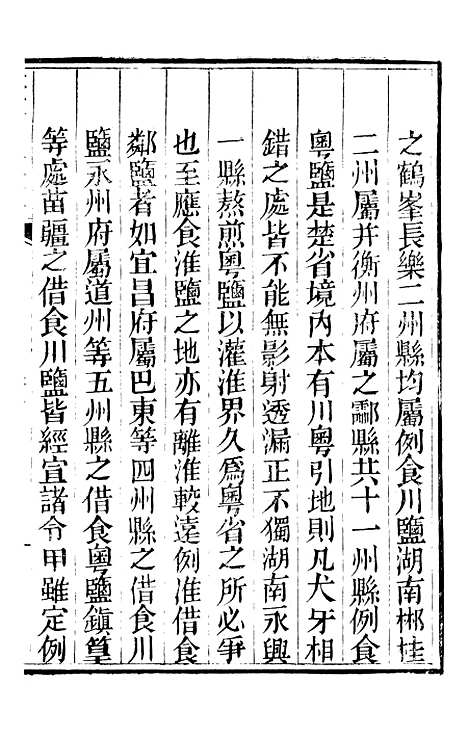 之鶴峯長樂二州縣均屬例食川鹽湖南郴桂
二州屬并衡州府屬之酃縣共十一州縣例食
粤鹽是楚省境内本有川粤引地則凡犬牙相
錯之處皆不能無影射透漏正不獨湖南永興
一縣熬煎粤鹽以灌淮界久爲粤省之所必爭
也至應食淮鹽之地亦有離淮較遠例准借食
鄰鹽者如宜昌府屬巴東等四州縣之借食川
鹽永州府屬道州等五州縣之借食粤鹽鎮篁
等處苗疆之借食川鹽皆經宣諸令甲雖定例